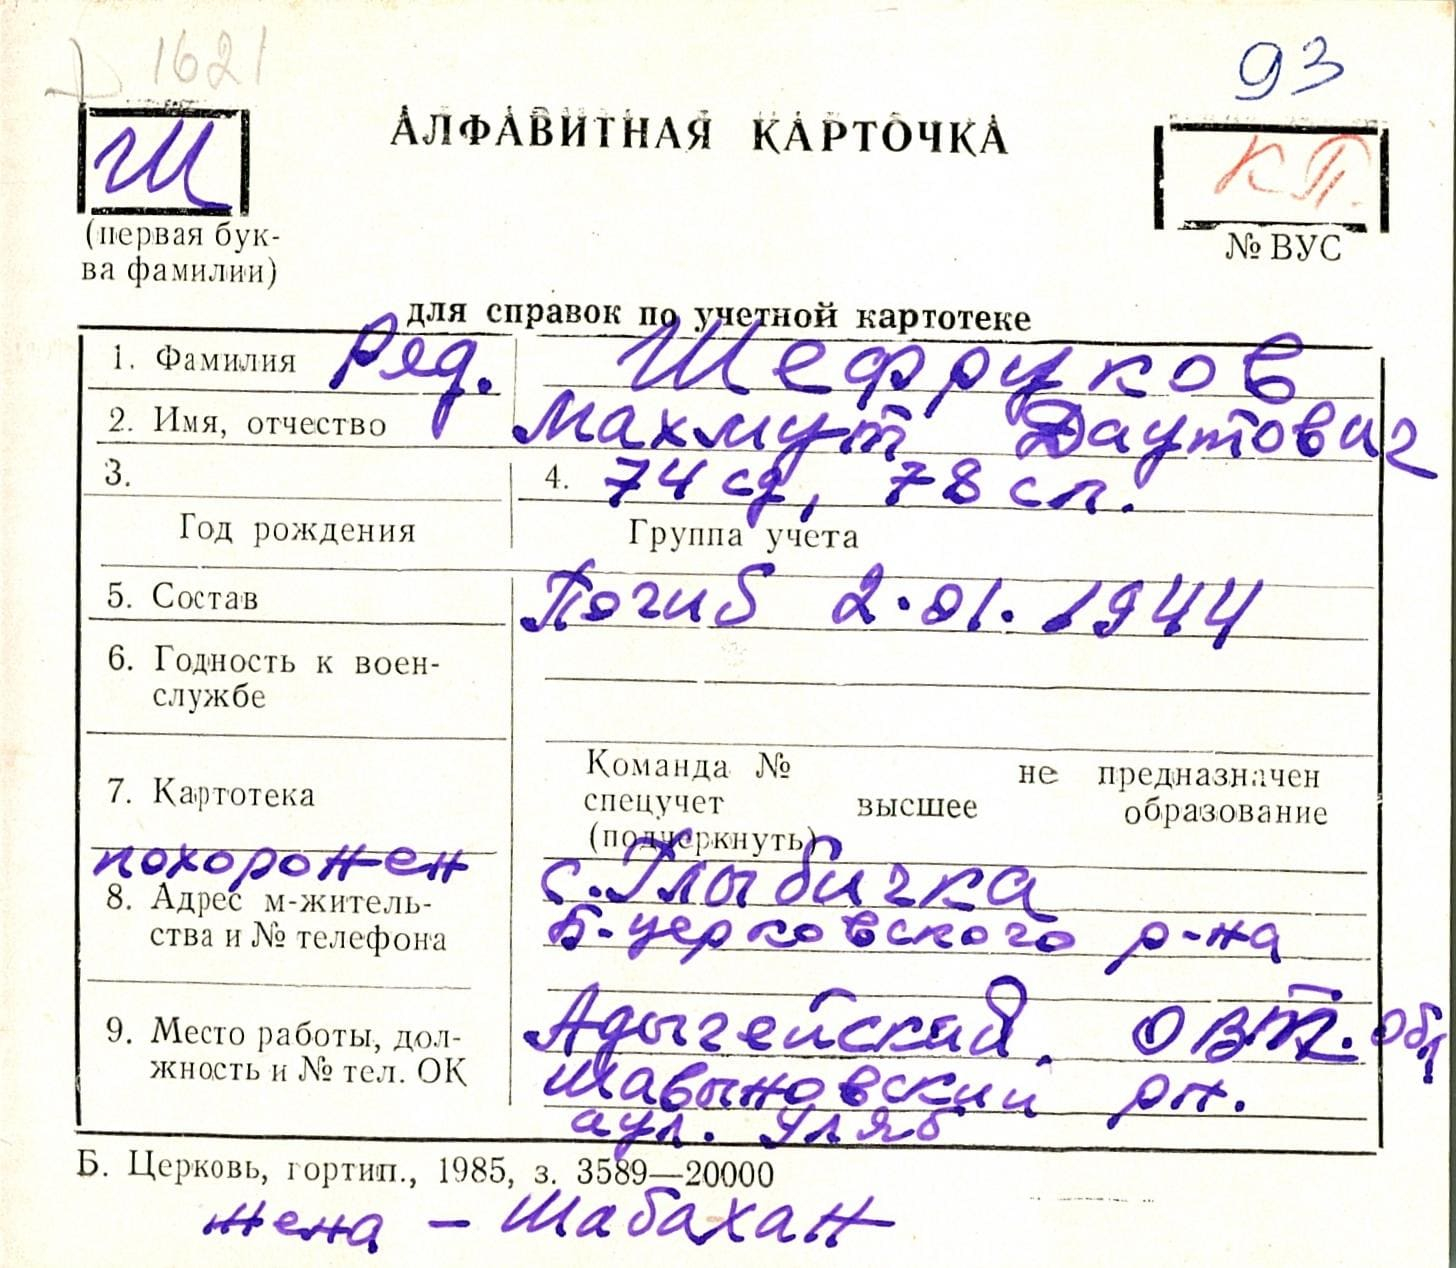 1621
93
Ш
АЛФАВИТНАЯ КАРТОЧКА
КП.
(первая бук-
ва фамилии)
№ ВУС
для справок по учетной картотеке
1. Фамилия Ряд. Шефруков
2. Имя, отчество Махмут Даутович
3. 4. 74 сд, 78 сп.
Год рождения Группа учета
5. Состав Погиб 2.01.1944
6. Годность к воен-
службе
Команда № не предназначен
7. Картотека спецучет высшее образование
(подчеркнуть)
похоронен с. Глыбичка
8. Адрес м-житель-
ства и № телефона Б-церковского р-на
9. Место работы, дол- Адыгейский. авт. обл
жность и № тел. ОК Шавыновский рн.
аул. Уляб
Б. Церковь, гортип., 1985, з. 3589—20000
жена - Шабахан